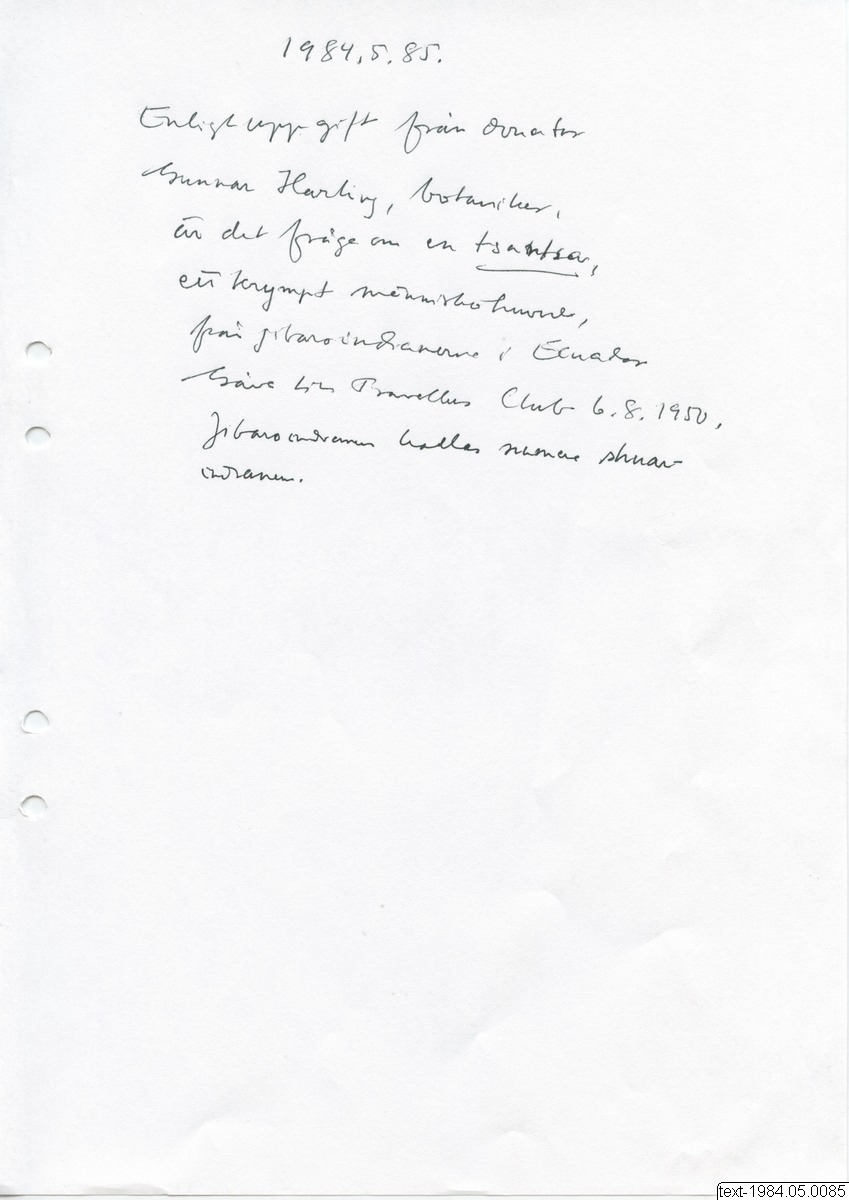 1984.5.85.
Enligt uppgift från donator
Gunnar Harling, botaniker,
är det fråga om en tsantsa,
ett krympt människohuvud,
från jibaroindianerna i Ecuador
Gåva till Travellers Club 6.8.1950.
Jibaroindianerna kallas numera shuar-
indianerna.
text-1984.05.0085